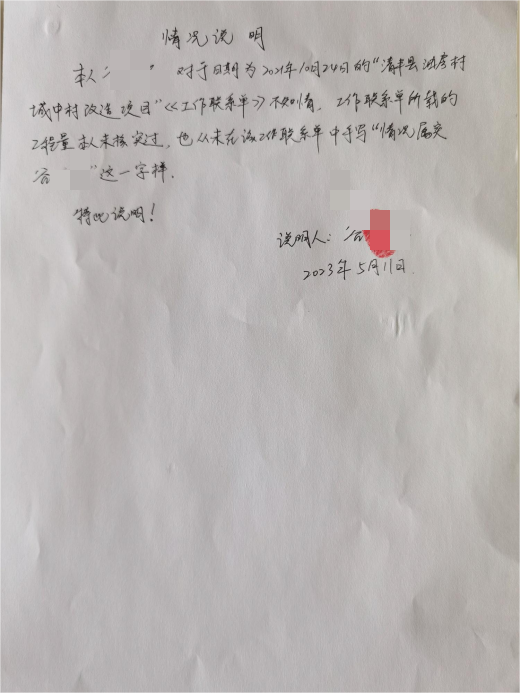 情况说明
本人 对于日期为2021年10月24日的“清丰县 村
城中村改造项目”《工作联系单》不知情。工作联系单所载的
工程量本人未核实过，也从未在该工作联系单中手写“情况属实
谷 ”这一字样。
特此说明！
说明人：谷
2023年5月11日